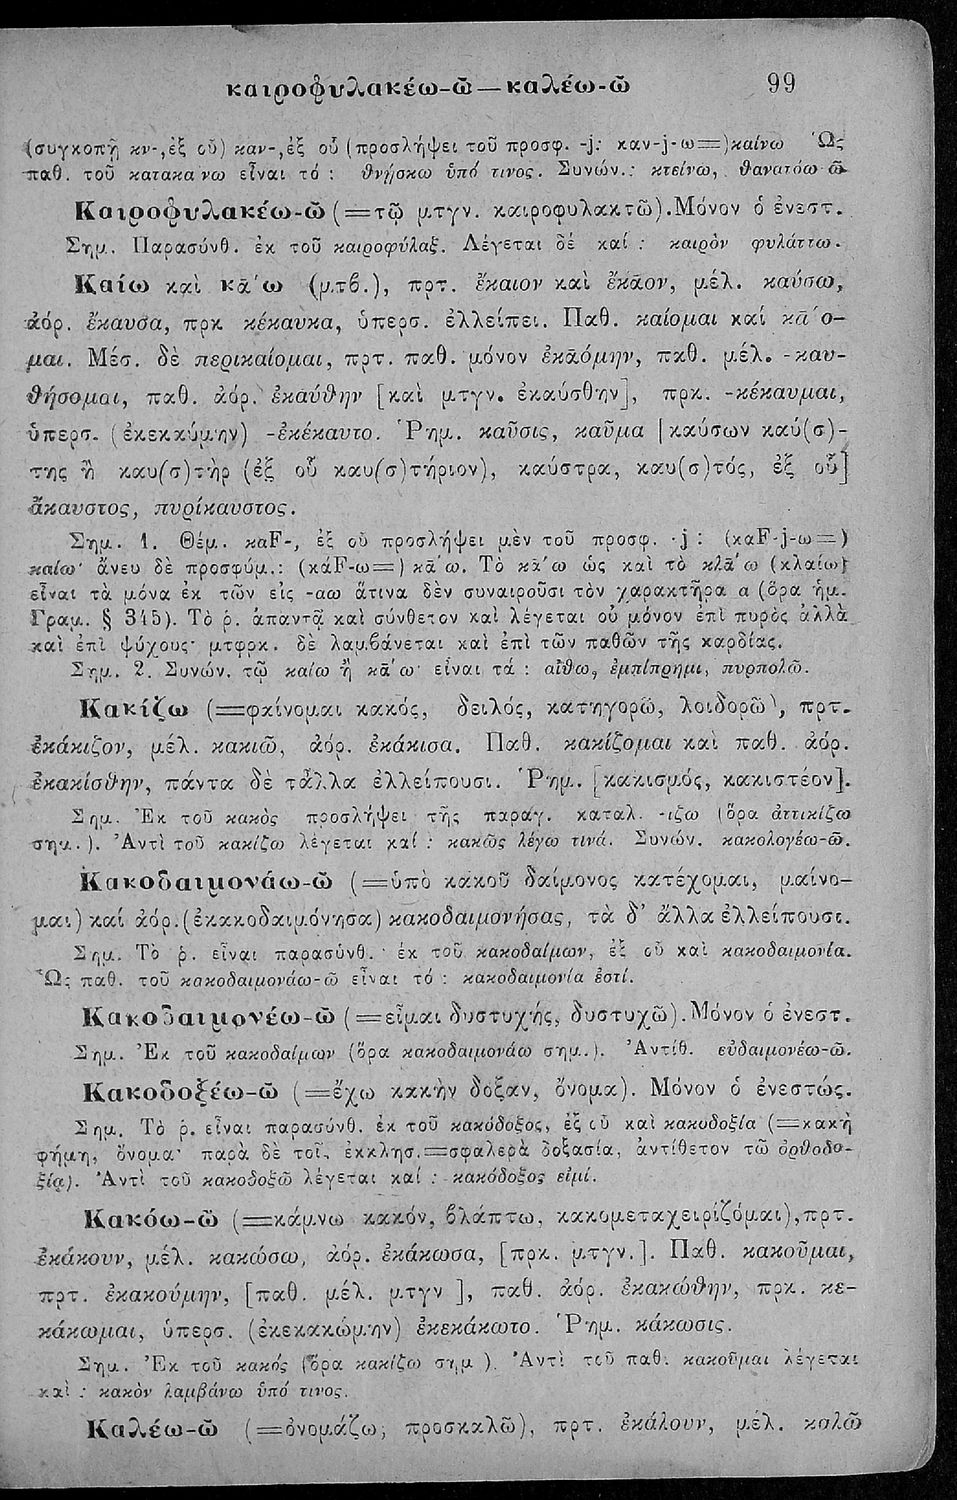 καιροφυλακέω-ῶ — καλέω-ῶ 99
(συγκοπῇ κν-, ἐξ οὗ) καν-, ἐξ οὗ (προσλήψει τοῦ προσφ. -j: καν-j-ω=) καίνω Ὡς
παθ. τοῦ κατακαίνω εἶναι τό : θνήσκω ὑπό τινος. Συνών.: κτείνω, θανατόω-ῶ.
Καιροφυλακέω-ῶ (=τῷ μτγν. καιροφυλακτῶ). Μόνον ὁ ἐνεστ.
Σημ. Παρασύνθ. ἐκ τοῦ καιροφύλαξ. Λέγεται δέ καί : καιρὸν φυλάττω.
Καίω καὶ κᾱ́ω (μτβ.), πρτ. ἔκαιον καὶ ἔκᾱον, μέλ. καύσω,
ἀόρ. ἔκαυσα, πρκ κέκαυκα, ὑπερσ. ἐλλείπει. Παθ. καίομαι καί κᾱ́ο-
μαι. Μέσ. δὲ περικαίομαι, πρτ. παθ. μόνον ἐκᾱόμην, παθ. μέλ. -καυ-
θήσομαι, παθ. ἀόρ. ἐκαύθην [καὶ μτγν. ἐκαύσθην], πρκ. -κέκαυμαι,
ὑπερσ. (ἐκεκαύμην) -ἐκέκαυτο. Ῥημ. καῦσις, καῦμα [καύσων καύ(σ)-
της ἢ καυ(σ)τὴρ (ἐξ οὗ καυ(σ)τήριον), καύστρα, καυ(σ)τός, ἐξ οὗ]
ἄκαυστος, πυρίκαυστος.
Σημ. 1. Θέμ. καF-, ἐξ οὗ προσλήψει μὲν τοῦ προσφ. -j : (καF-j-ω=)
καίω· ἄνευ δὲ προσφύμ.: (κάF-ω=) κᾱ́ω. Τὸ κᾱ́ω ὡς καὶ τὸ κλᾱ́ω (κλαίω)
εἶναι τὰ μόνα ἐκ τῶν εἰς -αω ἅτινα δὲν συναιροῦσι τὸν χαρακτῆρα α (ὅρα ἡμ.
Γραμ. § 345). Τὸ ῥ. ἀπαντᾷ καὶ σύνθετον καὶ λέγεται οὐ μόνον ἐπὶ πυρὸς ἀλλὰ
καὶ ἐπὶ ψύχους· μτφρκ. δὲ λαμβάνεται καὶ ἐπὶ τῶν παθῶν τῆς καρδίας.
Σημ. 2. Συνών. τῷ καίω ἢ κᾱ́ω· εἶναι τά : αἴθω, ἐμπίπρημι, πυρπολῶ.
Κακίζω (=φαίνομαι κακός, δειλός, κατηγορῶ, λοιδορῶ), πρτ.
ἐκάκιζον, μέλ. κακιῶ, ἀόρ. ἐκάκισα. Παθ. κακίζομαι καὶ παθ. ἀόρ.
ἐκακίσθην, πάντα δὲ τἆλλα ἐλλείπουσι. Ῥημ. [κακισμός, κακιστέον].
Σημ. Ἐκ τοῦ κακὸς προσλήψει τῆς παραγ. καταλ. -ιζω (ὅρα ἀττικίζω
σημ.). Ἀντὶ τοῦ κακίζω λέγεται καί : κακῶς λέγω τινά. Συνών. κακολογέω-ῶ.
Κακοδαιμονάω-ῶ (=ὑπὸ κακοῦ δαίμονος κατέχομαι, μαίνο-
μαι) καί ἀόρ. (ἐκακοδαιμόνησα) κακοδαιμονήσας, τὰ δ' ἄλλα ἐλλείπουσι.
Σημ. Τὸ ῥ. εἶναι παρασύνθ. ἐκ τοῦ κακοδαίμων, ἐξ οὗ καὶ κακοδαιμονία.
Ὡς παθ. τοῦ κακοδαιμονάω-ῶ εἶναι τό : κακοδαιμονία ἐστί.
Κακοδαιμονέω-ῶ (=εἶμαι δυστυχής, δυστυχῶ). Μόνον ὁ ἐνεστ.
Σημ. Ἐκ τοῦ κακοδαίμων (ὅρα κακοδαιμονάω σημ.). Ἀντίθ. εὐδαιμονέω-ῶ.
Κακοδοξέω-ῶ (=ἔχω κακὴν δόξαν, ὄνομα). Μόνον ὁ ἐνεστώς.
Σημ. Τὸ ῥ. εἶναι παρασύνθ. ἐκ τοῦ κακόδοξος, ἐξ οὗ καὶ κακοδοξία (=κακὴ
φήμη, ὄνομα· παρὰ δὲ τοῖς ἐκκλησ.=σφαλερὰ δοξασία, ἀντίθετον τῷ ὀρθοδο-
ξία). Ἀντὶ τοῦ κακοδοξῶ λέγεται καί : κακόδοξος εἰμί.
Κακόω-ῶ (=κάμνω κακόν, βλάπτω, κακομεταχειρίζομαι), πρτ.
ἐκάκουν, μέλ. κακώσω, ἀόρ. ἐκάκωσα, [πρκ. μτγν.]. Παθ. κακοῦμαι,
πρτ. ἐκακούμην, [παθ. μέλ. μτγν], παθ. ἀόρ. ἐκακώθην, πρκ. κε-
κάκωμαι, ὑπερσ. (ἐκεκακώμην) ἐκεκάκωτο. Ῥημ. κάκωσις.
Σημ. Ἐκ τοῦ κακός (ὅρα κακίζω σημ). Ἀντὶ τοῦ παθ. κακοῦμαι λέγεται
καὶ : κακὸν λαμβάνω ὑπό τινος.
Καλέω-ῶ (=ὀνομάζω, προσκαλῶ), πρτ. ἐκάλουν, μέλ. καλῶ